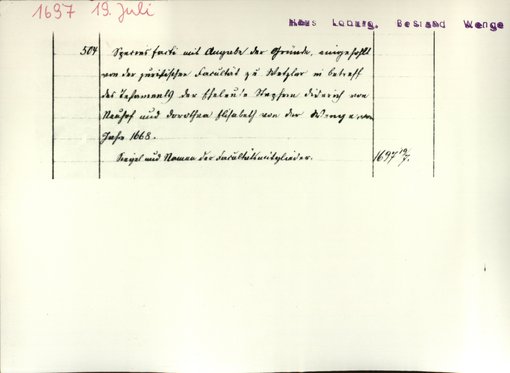 1697 19. Juli
Haus Loburg, Bestand Wenge
504 Species facti mit Angabe der Gründe, eingeholt
von der juristischen Facultät zu Wetzlar in betreff
des Testaments der Eheleute Stephan Diderich von
Neuhof und Dorothea Elisabeth von der Wenge vom
Jahre 1668.
Siegel und Namen der Facultätsmitglieder. 1697 19/7.